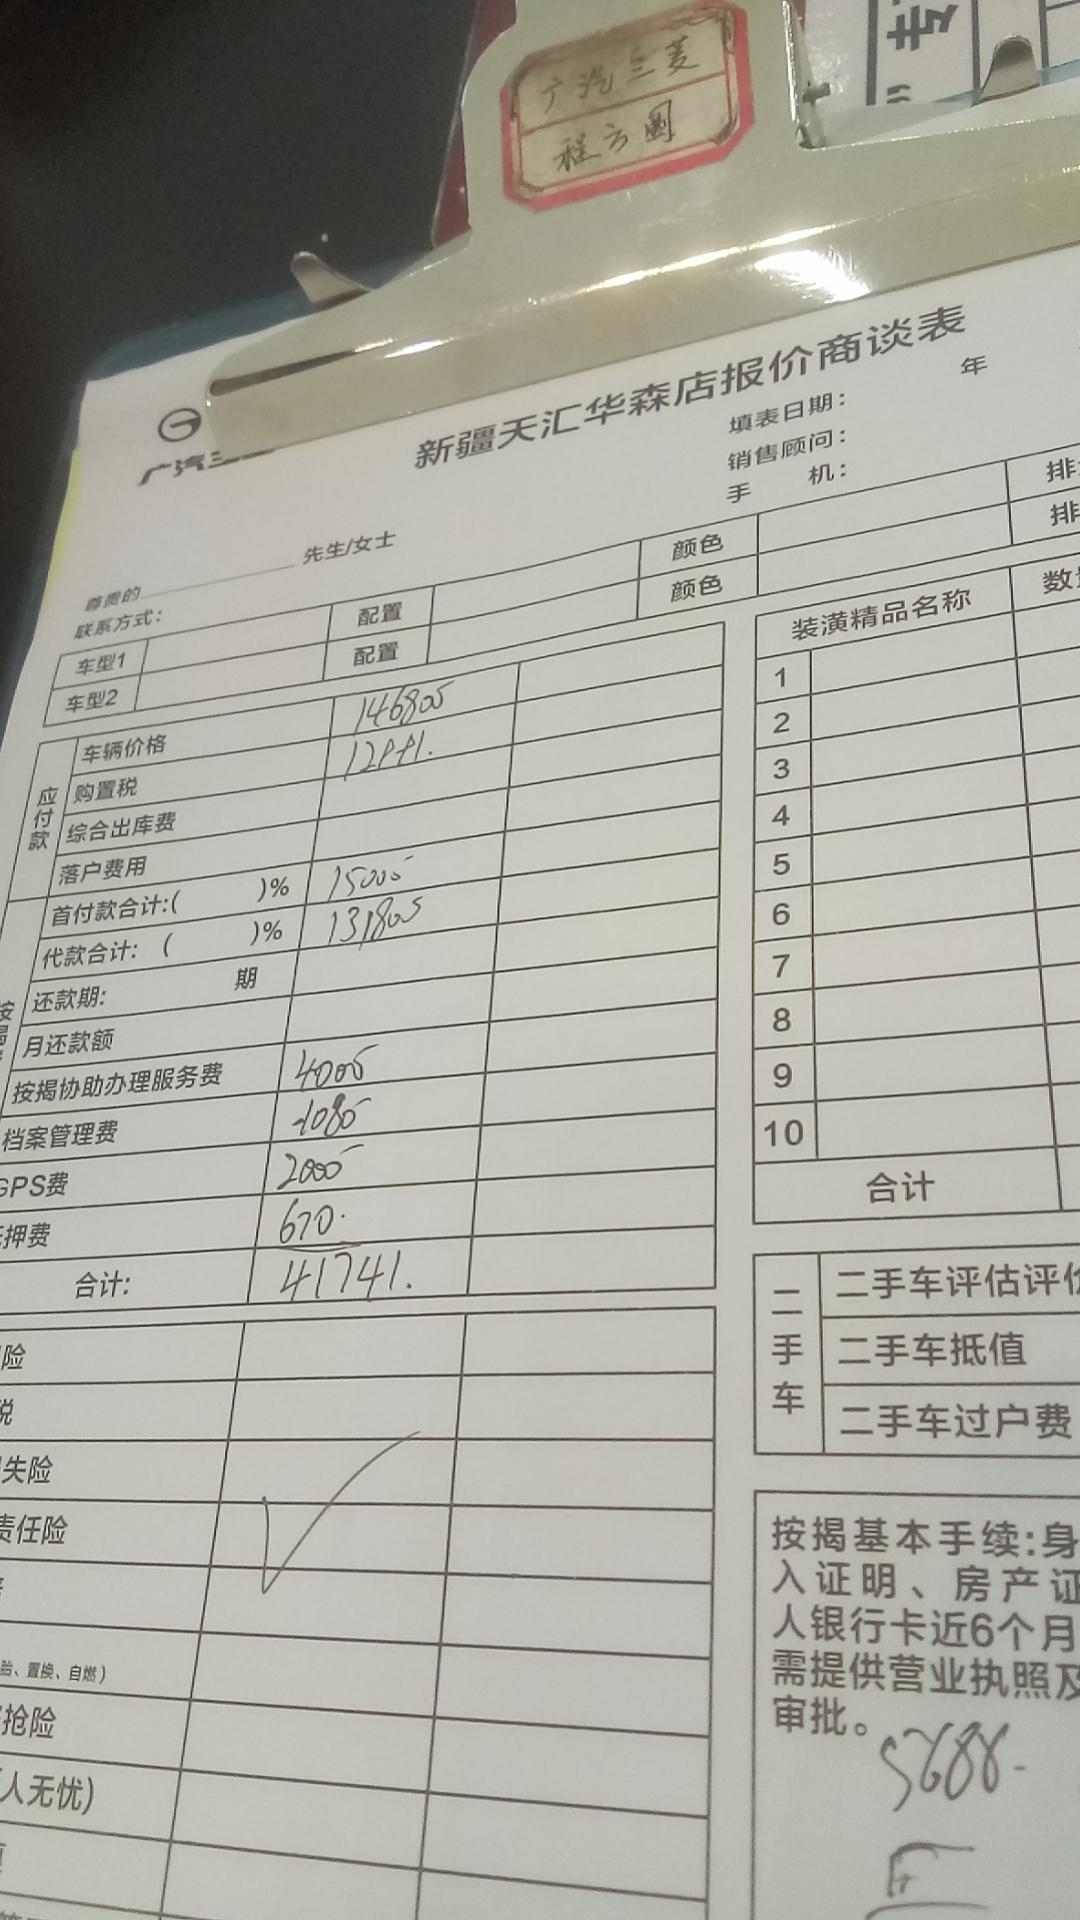 广汽三菱
程方圆
新疆天汇华森店报价商谈表
填表日期： 年
销售顾问：
手 机：
尊贵的 先生/女士
联系方式：
车型1 配置 颜色
车型2 配置 颜色
应付款
车辆价格 146800
购置税
综合出库费
落户费用
首付款合计:( )% 15000
代款合计: ( )% 131800
还款期: 期
月还款额
按揭协助办理服务费 4000
档案管理费 1080
GPS费 2000
押费 670.
合计: 41741.
险
税
失险
责任险
胎、置换、自燃)
抢险
人无忧)
装潢精品名称
1
2
3
4
5
6
7
8
9
10
合计
二手车
二手车评估评价
二手车抵值
二手车过户费
按揭基本手续:身
入证明、房产证
人银行卡近6个月
需提供营业执照及
审批。